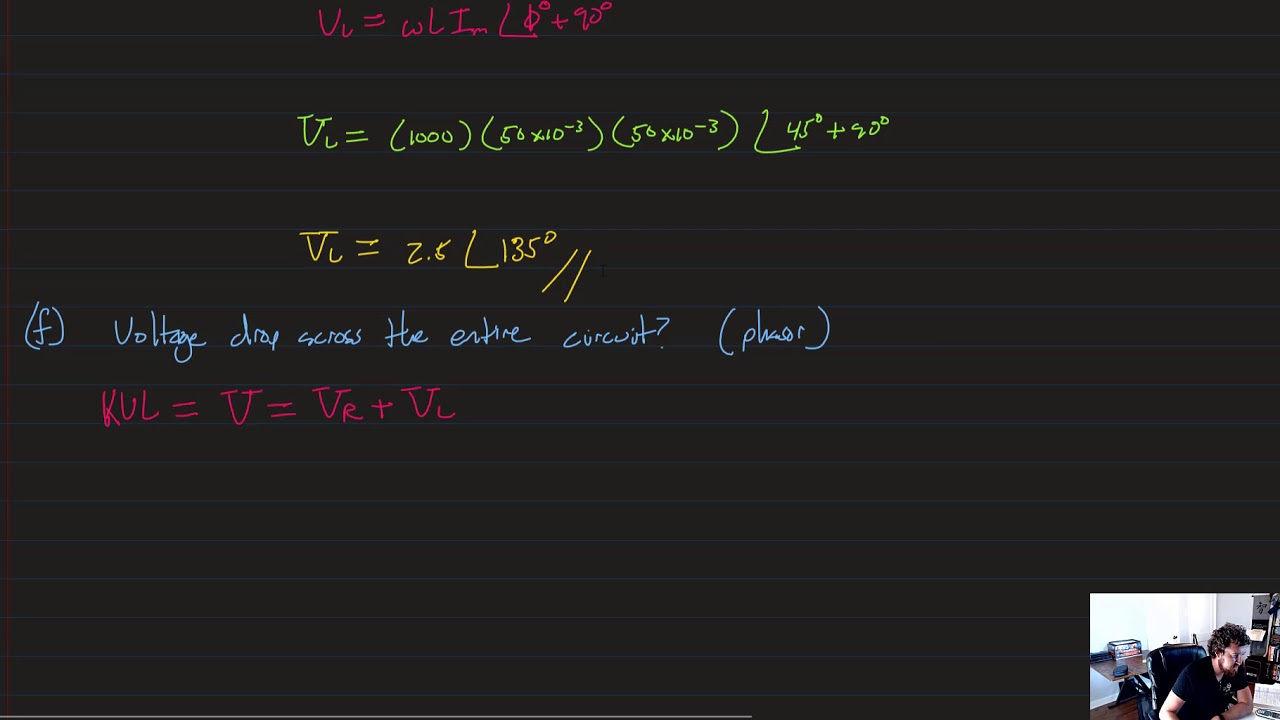 V_L = ωL I_m ∠φ° + 90°
V_L = (1000)(50×10⁻³)(50×10⁻³) ∠45° + 90°
V_L = 2.5 ∠135° //
(f) Voltage drop across the entire circuit? (phasor)
KVL = V = V_R + V_L